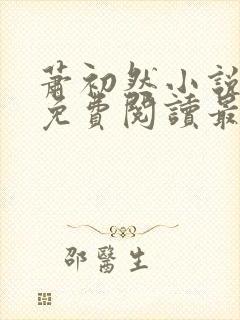 蕭初然小說
免費閱讀最
邵醫生